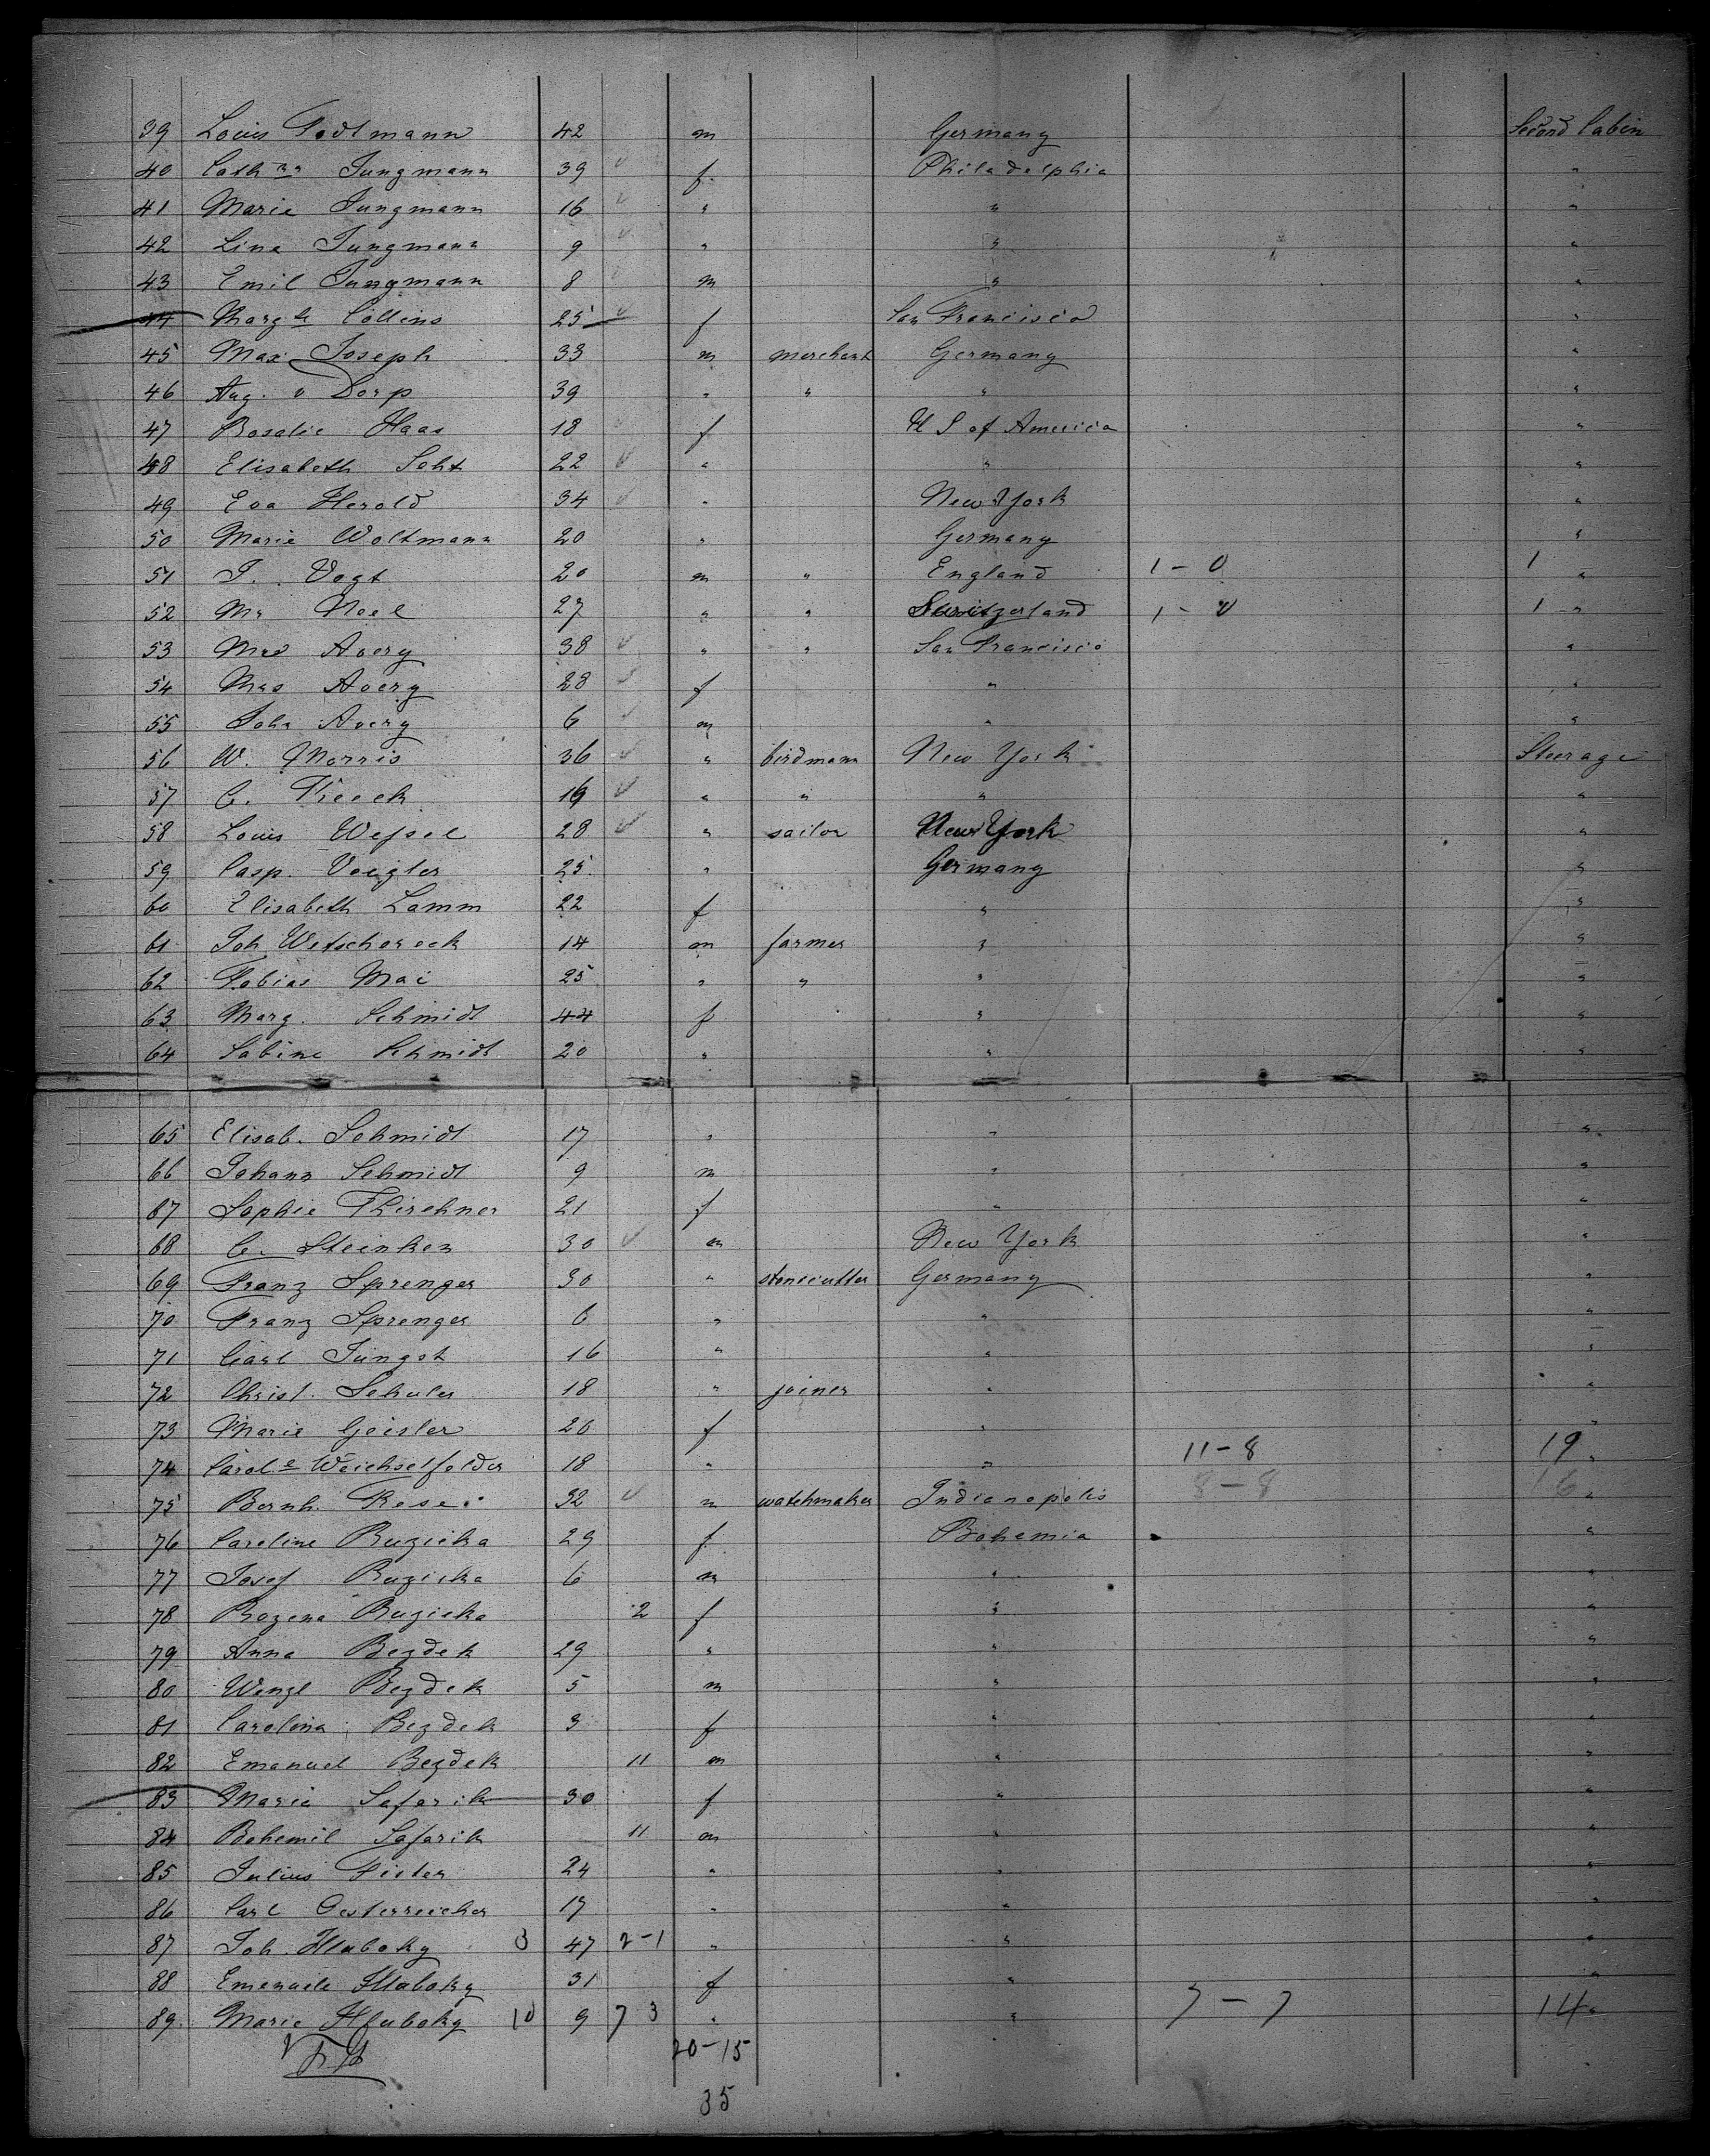 39 Louis Podtmann 42 m Germany Second Cabin
40 Cath Jungmann 39 f Philadelphia "
41 Marie Jungmann 16 " " "
42 Lina Jungmann 9 " " "
43 Emil Jungmann 8 m " "
44 Marg Collins 25 f San Francisco "
45 Max Joseph 33 m merchant Germany "
46 Aug. v Dorp 39 " " " "
47 Rosalie Haas 18 f U S of America "
48 Elisabeth Seht 22 " " "
49 Eva Herold 34 " New York "
50 Marie Woltmann 20 " Germany "
51 J. Vogt 20 m " England 1 - 0 1 "
52 Mr Noel 27 " " Switzerland 1 - 0 1 "
53 Avery 38 " " San Francisco "
54 Mrs Avery 28 f " "
55 John Avery 6 m " "
56 W. Morris 36 " birdmann New York Steerage
57 C. 19 " " " "
58 Louis Wessel 28 " sailor New York "
59 Casp. Voigter 25 " Germany "
60 Elisabeth Lamm 22 f " "
61 Joh 14 m farmer " "
62 Tobias Mai 25 " " " "
63 Marg. Schmidt 44 f " "
64 Sabine Schmidt 20 " " "
65 Elisab. Schmidt 17 " " "
66 Johann Schmidt 9 m " "
67 Sophie 21 f " "
68 C. Steinken 30 m New York "
69 Franz Sprenger 30 " stonecutter Germany "
70 Franz Sprenger 6 " " "
71 Carl Jüngst 16 " " "
72 Christ. Schuler 18 " joiner " "
73 Marie Geisler 20 f " "
74 Carol.e Weichselfelder 18 " " 11 - 8 19 "
75 Bernh. Rese 32 m watchmaker Indianapolis 8 - 8 16 "
76 Caroline Ruzicka 29 f Bohemia "
77 Josef Ruzicka 6 m " "
78 Bozena Ruzicka 2 f " "
79 Anna Bezdek 29 " " "
80 Wenzl Bezdek 5 m " "
81 Carolina Bezdek 3 f " "
82 Emanuel Bezdek 11 m " "
83 Marie Safarik 30 f " "
84 Bohemil Safarik 11 m " "
85 Julius 24 " " "
86 Carl Oesterreicher 17 " " "
87 Joh. Hluboky 3 47 2 - 1 " " "
88 Emanuele Hluboky 31 f " "
89 Marie Hluboky 10 9 7 3 " " 7 - 7 14 "
20 - 15
35